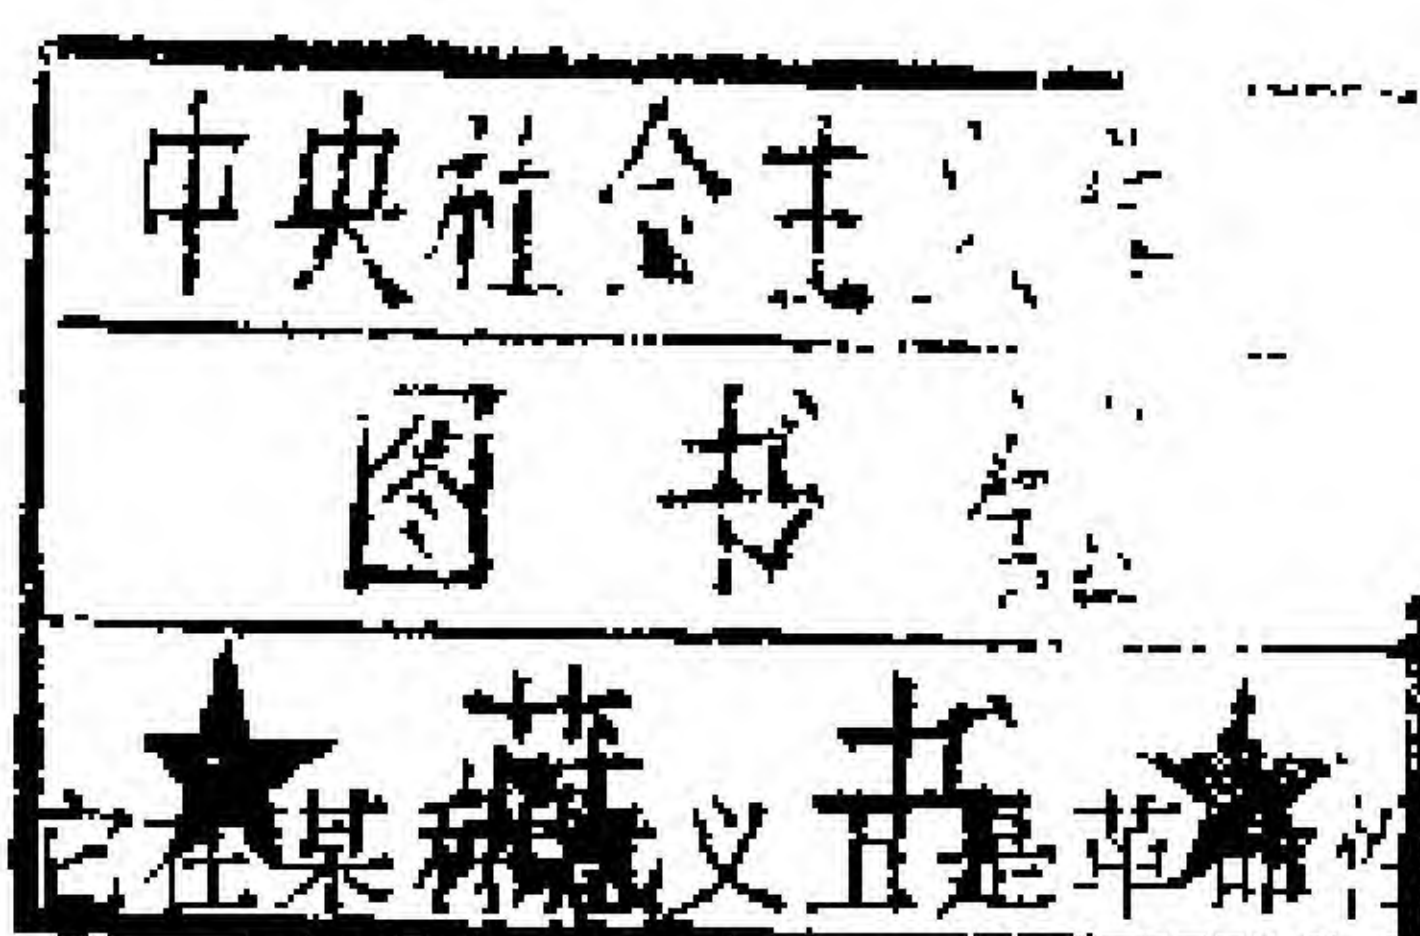 中央社会主义
图书馆
★藏书★
它在某种意义上是革命的